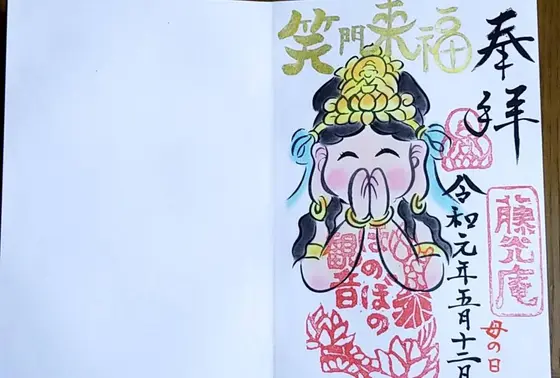 奉拝
笑門来福
令和元年五月十二日
藤光庵
母の日
ほのぼの
観音